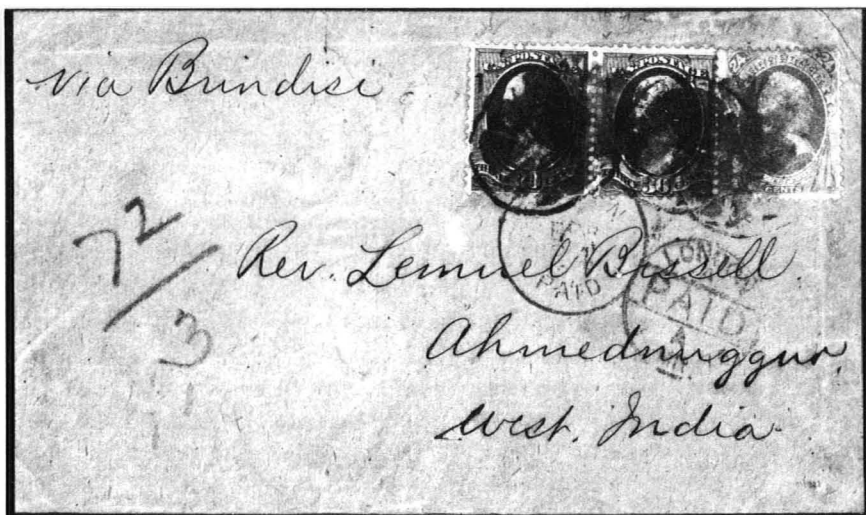 via Brindisi
U.S. POSTAGE
CENTS
72
3
PAID
LONDON
PAID
Rev. Lemuel Bissell.
Ahmednuggur.
West. India